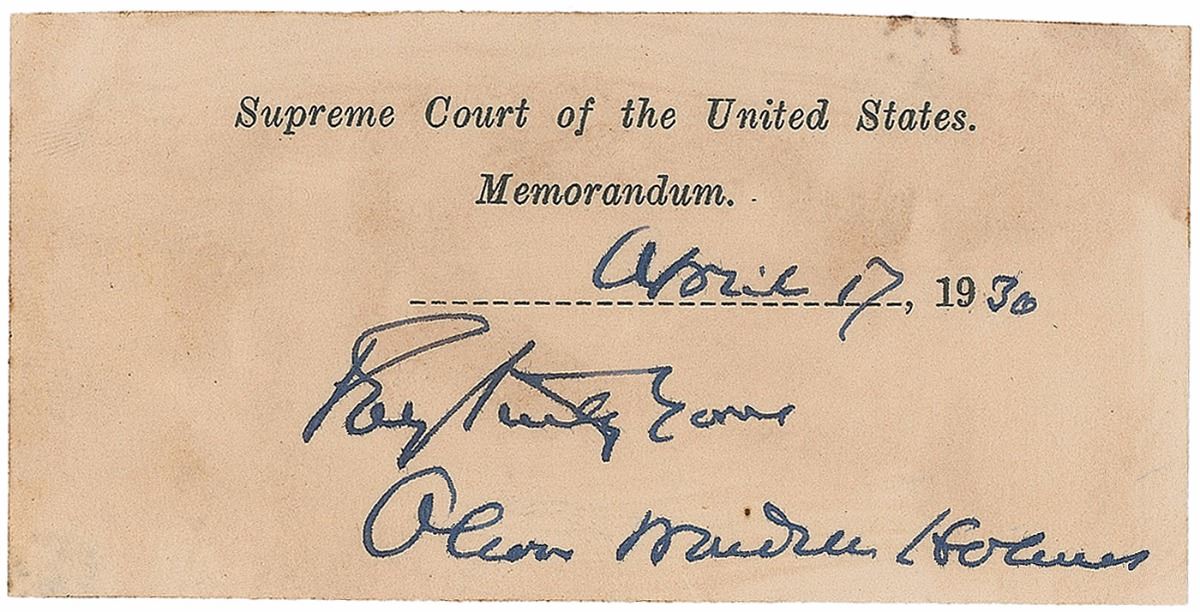 Supreme Court of the United States.
Memorandum.
April 17, 1930
Very truly yours
Oliver Wendell Holmes